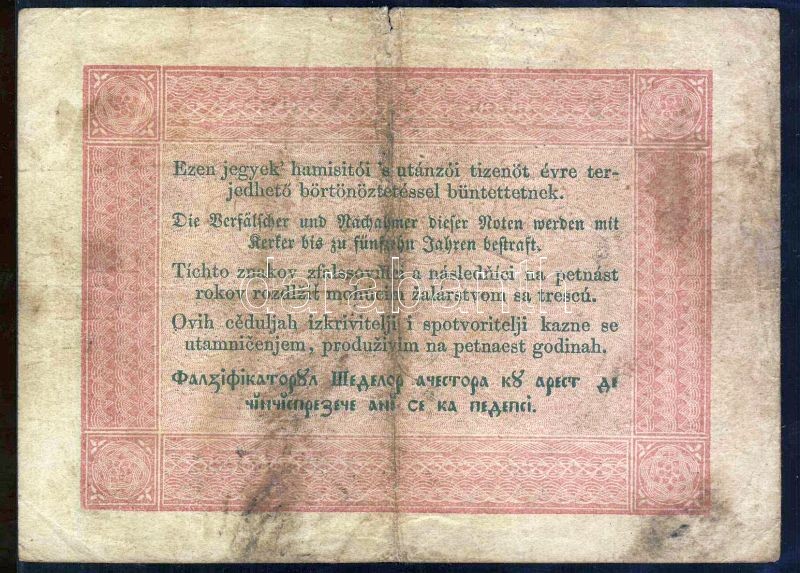 Ezen jegyek' hamisitói 's utánzói tizenöt évre ter-
jedhető börtönöztetéssel büntettetnek.
Die Verfälscher und Nachahmer dieser Noten werden mit
Kerker bis zu fünfzehn Jahren bestraft.
Tíchto znakov zfalssovníci a následňíci na petnást
rokov rozdlžiť mohúcím žalárstvom sa trescú.
Ovih cĕduljah izkrivitelji i spotvoritelji kazne se
utamničenjem, produživim na petnaest godinah.
Фалꙁіфікаторꙋл Шеделор ачестора кꙋ арест де
чінчіспреꙁече ані се ка педепсі.
darabanth